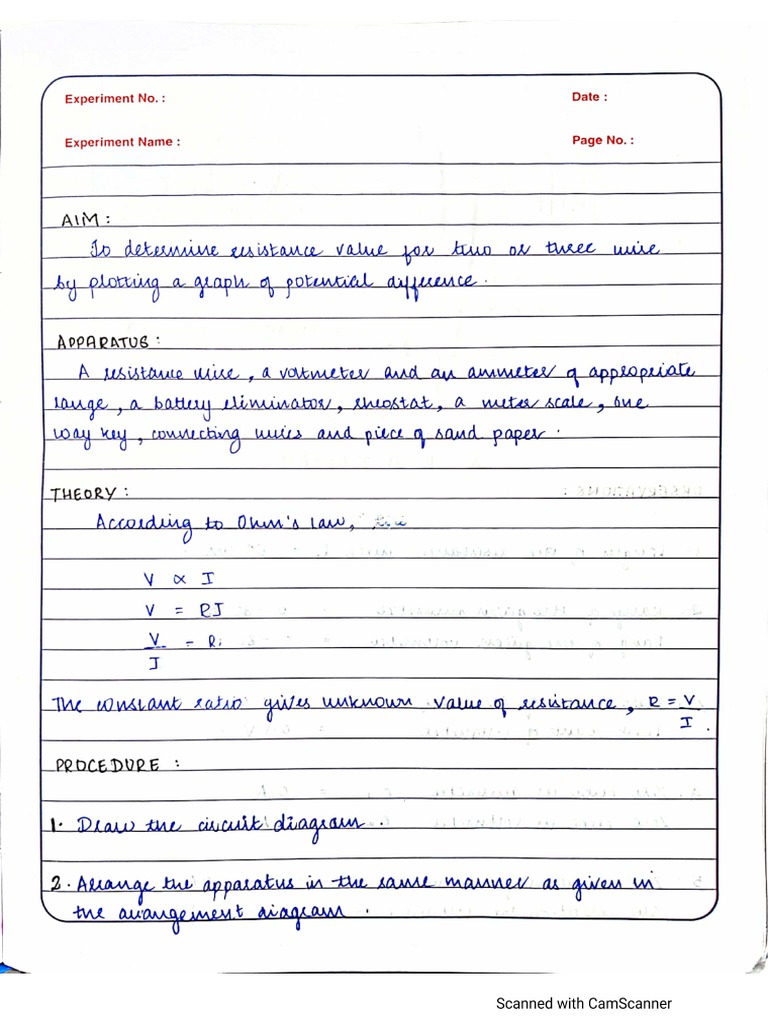 Experiment No. :
Date :
Experiment Name :
Page No. :
AIM :
To determine resistance value for two or three wire
by plotting a graph of potential difference.
APPARATUS :
A resistance wire, a voltmeter and an ammeter of appropriate
range, a battery eliminator, rheostat, a meter scale, one
way key, connecting wires and piece of sand paper.
THEORY :
According to Ohm's law,
V ∝ I
V = RI
V/I = R
The constant ratio gives unknown value of resistance, R = V/I.
PROCEDURE :
1. Draw the circuit diagram.
2. Arrange the apparatus in the same manner as given in
the arrangement diagram.
Scanned with CamScanner